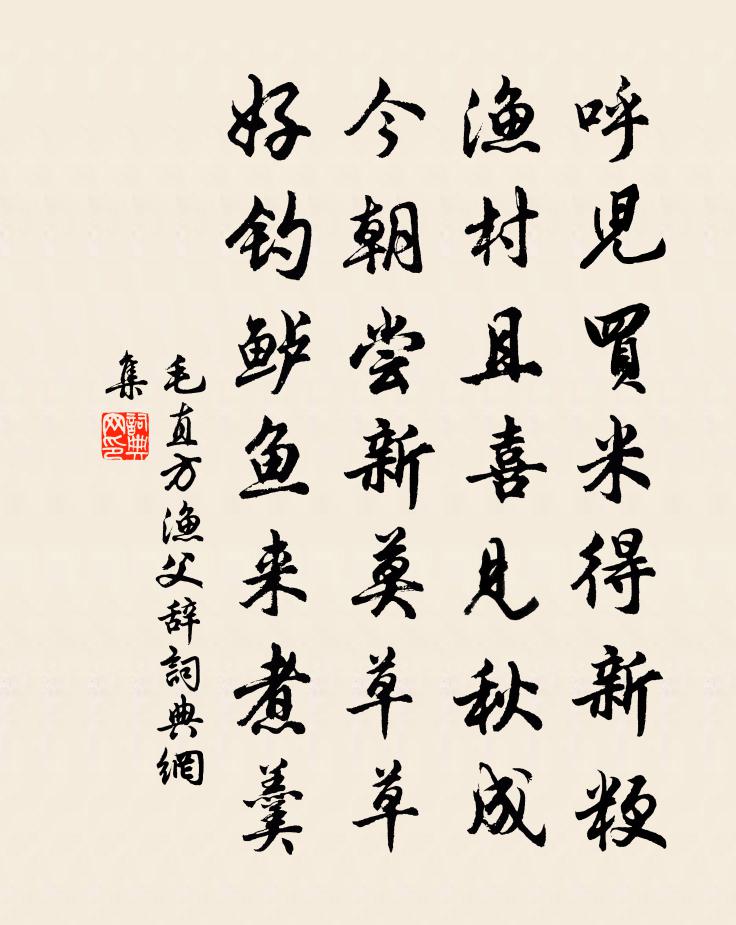 呼児買米得新粳
渔村且喜见秋成
今朝尝新莫草草
好钓鲈鱼来煮羹
毛直方渔父辞詞典網
集
詞典网印